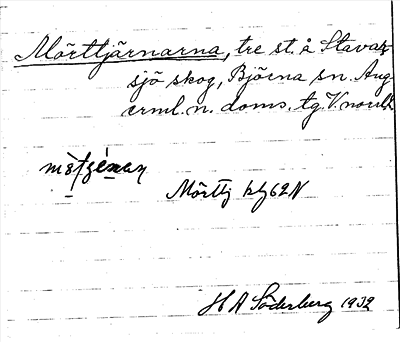 Mörttjärnarna, tre st. å Stavar-
sjö skog, Björna sn. Ång
erml. n. doms. tg. V. norrl.
Mörttj 62N
H A Söderberg 1932